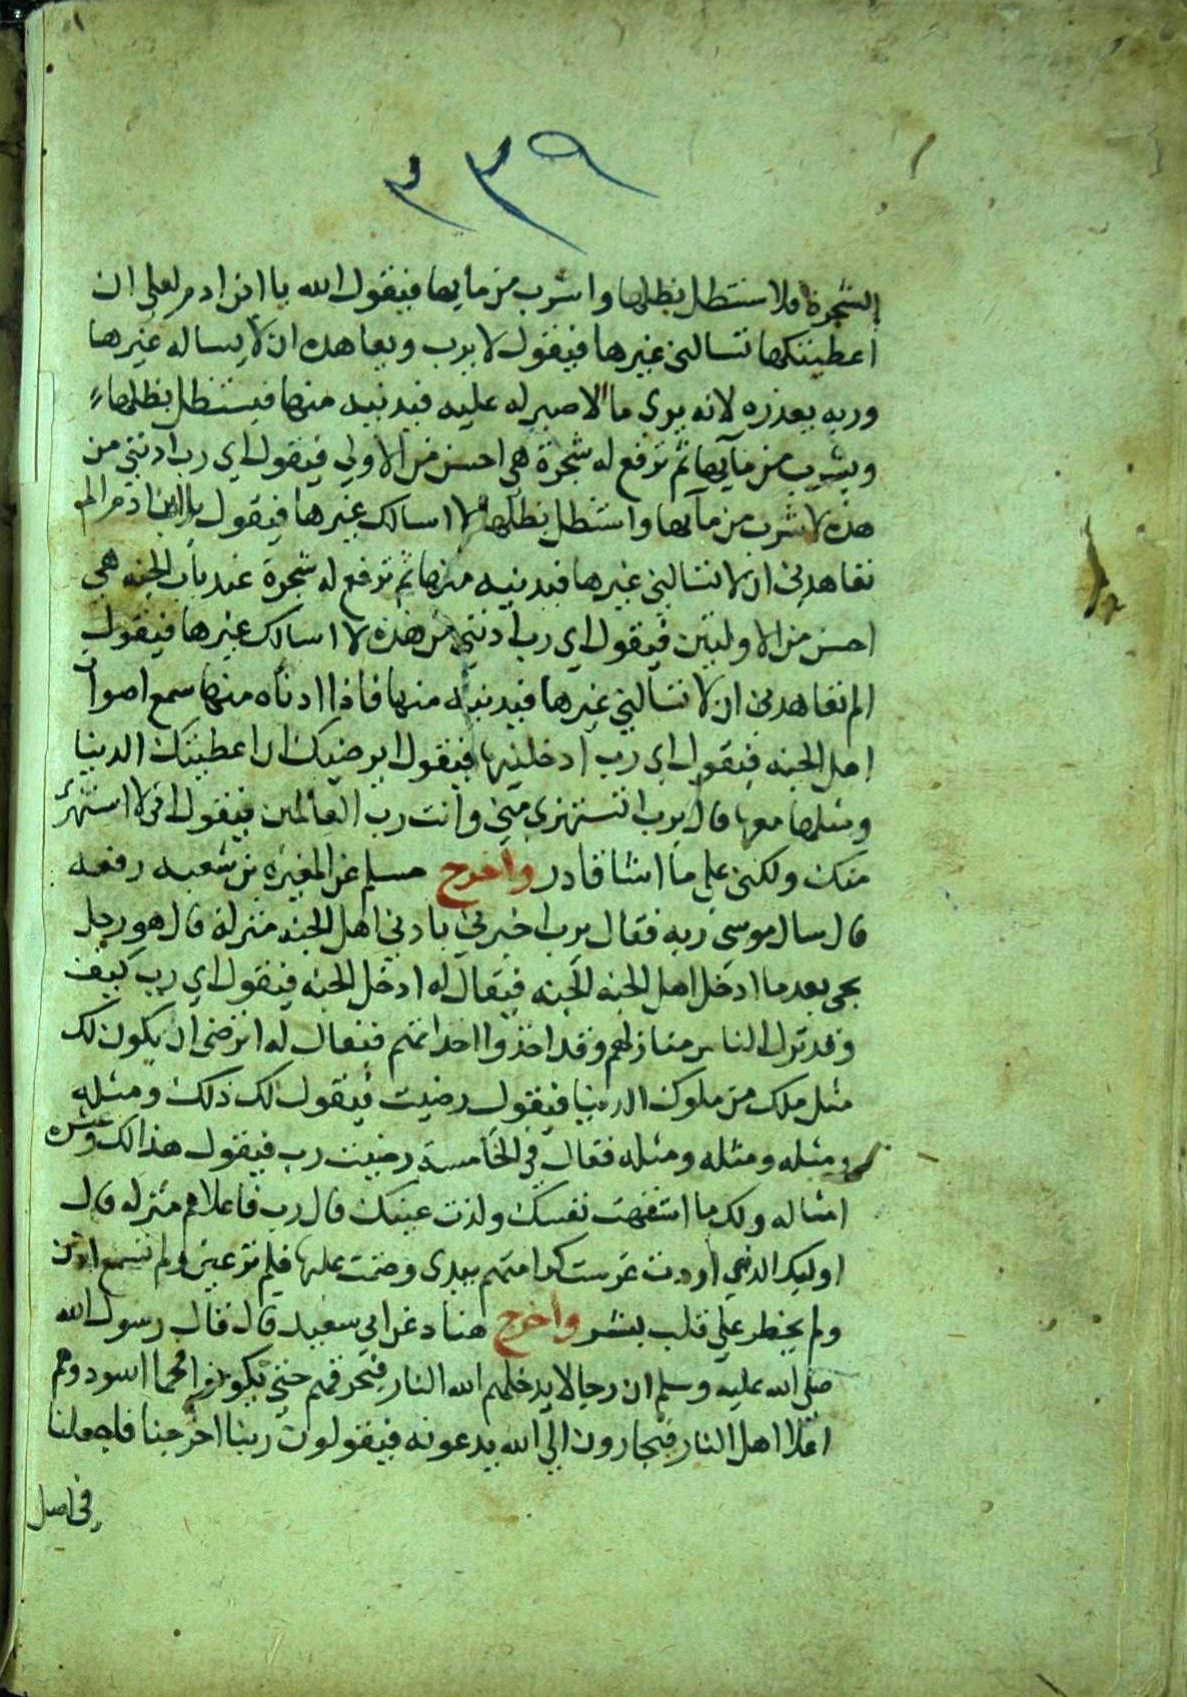 ٢٣٩
الشجرة فلاستظل بظلها واشرب من مايها فيقول الله يا ابن ادم لعلي ان
اعطيتكها تسالني غيرها فيقول لا يرب ويعاهده ان لا يساله غيرها
وربه يعذره لانه يرى ما لا صبر له عليه فيدنيه منها فيستظل بظلها
ويشرب من مآيها ثم ترفع له شجرة هي احسن من الاولي فيقول اي رب ادنني من
هذه لاشرب من مآيها واستظل بظلها لا اسالك غيرها فيقول يا ابن ادم الم
تعاهدني ان لا تسالني غيرها فيدنيه منها ثم ترفع له شجرة عند باب الجنه هي
احسن من الاوليتين فيقول اي رب ادنني من هذه لا اسالك غيرها فيقول
الم تعاهدني ان لا تسالني غيرها فيدنيه منها فاذا ادناه منها سمع اصوات
اهل الجنه فيقول اي رب ادخلنيها فيقول ايرضيك ان اعطيتك الدنيا
ومثلها معها قال يرب اتستهزي مني وانت رب العالمين فيقول اني لا استهزئ
منك ولكني علي ما اشا قادر واخرج مسلم عن المغيره بن شعبه رفعه
قال سال موسي ربه فقال يرب اخبرني بادني اهل الجنه منزلة قال هو رجل
يجي بعد ما ادخل اهل الجنه الجنه فيقال له ادخل الجنه فيقول اي رب كيف
وقد نزل الناس منازلهم وقد اخذوا اخذاتهم فيقال له اترضي ان يكون لك
مثل ملك من ملوك الدنيا فيقول رضيت فيقول لك ذلك ومثله
ومثله ومثله ومثله فقال في الخامسة رضيت رب فيقول هذا لك وعشرة
امثاله ولك ما اشتهت نفسك ولذت عينك قال رب فاعلاهم منزله قال
اوليك الذين اردت غرست كرامتهم بيدي وختمت عليها فلم تر عين ولم تسمع اذن
ولم يخطر علي قلب بشر واخرج هناد عن ابي سعيد قال قال رسول الله
صلي الله عليه وسلم ان رجالا يدخلهم الله النار فيحرقهم حتي يكونوا فحما اسود وهم
اعلا اهل النار فيجارون الي الله يدعونه فيقولون ربنا اخرجنا فاجعلنا
في اصل